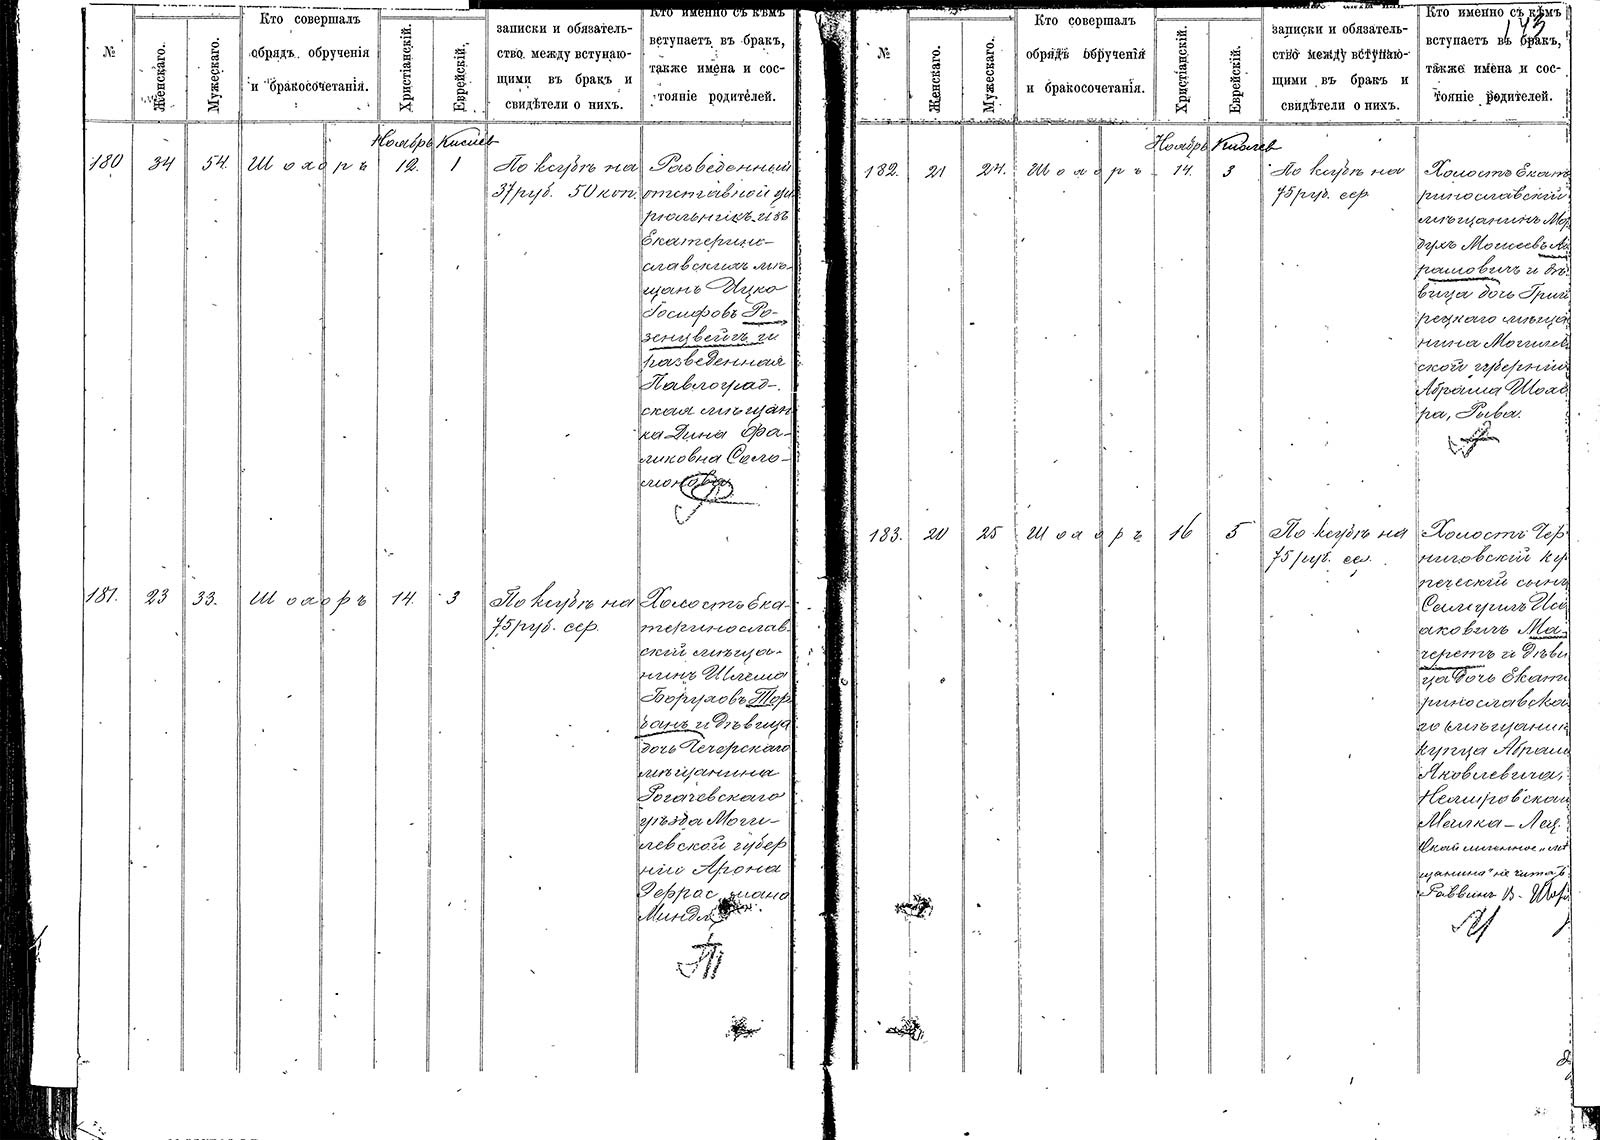 №
Женскаго.
Мужескаго.
Кто совершалъ
обрядъ обрученія
и бракосочетанія.
Христіанскій.
Еврейскій.
записки и обязатель-
ство между вступаю-
щими въ бракъ и
свидѣтели о нихъ.
Кто именно съ кѣмъ
вступаетъ въ бракъ,
также имена и сос-
тояніе родителей.
Ноябрь Кислев
180 34 54. Шохоръ 12. 1
По ксубѣ на
37 руб. 50 коп.
Разведенный
отставной ци
рюльникъ изъ
Екатерино-
славскихъ мѣ-
щанъ Ицко
Іосифовъ Ро-
зенцвейгъ и
разведенная
Павлоград-
ская мѣщан
ка Дина Фа-
ликовна Соло-
монова
181. 23 33. Шохоръ 14. 3
По ксубѣ на
75 руб. сер.
Холостъ Ека-
теринослав
скій мѣща-
нинъ Шлема
Боруховъ Тор
чанъ и дѣвица
дочь Чечерскаго
мѣщанина
Рогачевскаго
уѣзда Моги-
левской губер
ніи Арона
Миндля
143
№
Женскаго.
Мужескаго.
Кто совершалъ
обрядъ обрученія
и бракосочетанія.
Христіанскій.
Еврейскій.
записки и обязатель-
ство между вступаю-
щими въ бракъ и
свидѣтели о нихъ.
Кто именно съ кѣмъ
вступаетъ въ бракъ,
также имена и сос-
тояніе родителей.
Ноябрь Кислев
182. 21 24. Шохоръ 14. 3
По ксубѣ на
75 руб. сер.
Холостъ Екате
ринославскій
мѣщанинъ Мор
духъ Мошеевъ Аб
рамовичъ и дѣ
вица дочь Григи
рецкаго мѣща
нина Могилев
ской губерніи
Абрама Шохо
ра, Рыва.
183. 20 25 Шохоръ 16 5
По ксубѣ на
75 руб. сер.
Холостъ Чер
ниговскій ку
печескій сынъ
Самуилъ Иса
аковичъ Ма-
черетъ и дѣви
ца дочь Екате
ринославска
го мѣщанин
купца Абрама
Яковлевича,
Немировская
Малка - Лея.
щанина" не читать
Раввинъ В. Шохор